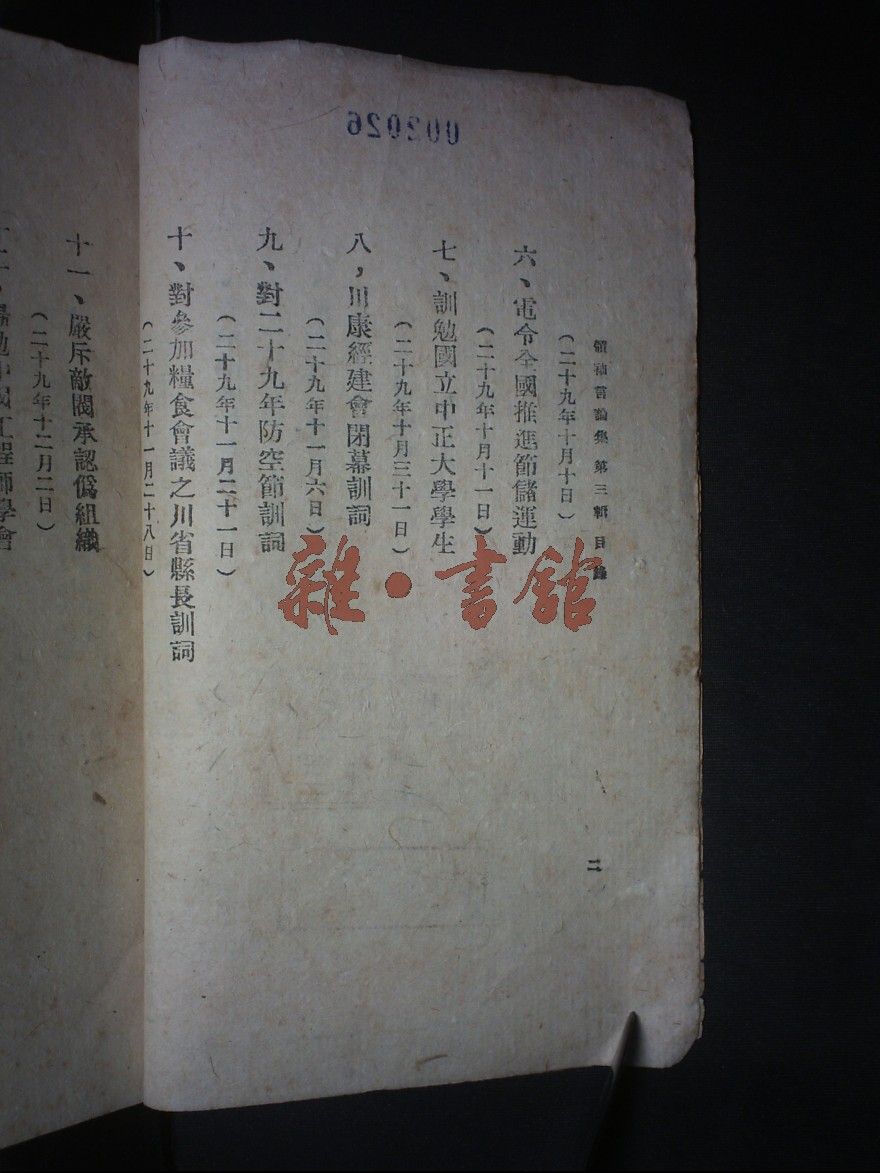 002026
領袖言論集 第三輯 目錄
二
（二十九年十月十日）
六、電令全國推進節儲運動
（二十九年十月十一日）
七、訓勉國立中正大學學生
（二十九年十月三十一日）
八，川康經建會閉幕訓詞
（二十九年十一月六日）
九、對二十九年防空節訓詞
（二十九年十一月二十一日）
十、對參加糧食會議之川省縣長訓詞
（二十九年十一月二十八日）
十一、嚴斥敵閥承認僞組織
（二十九年十二月二日）
勉中國工程師學會
雜·書館